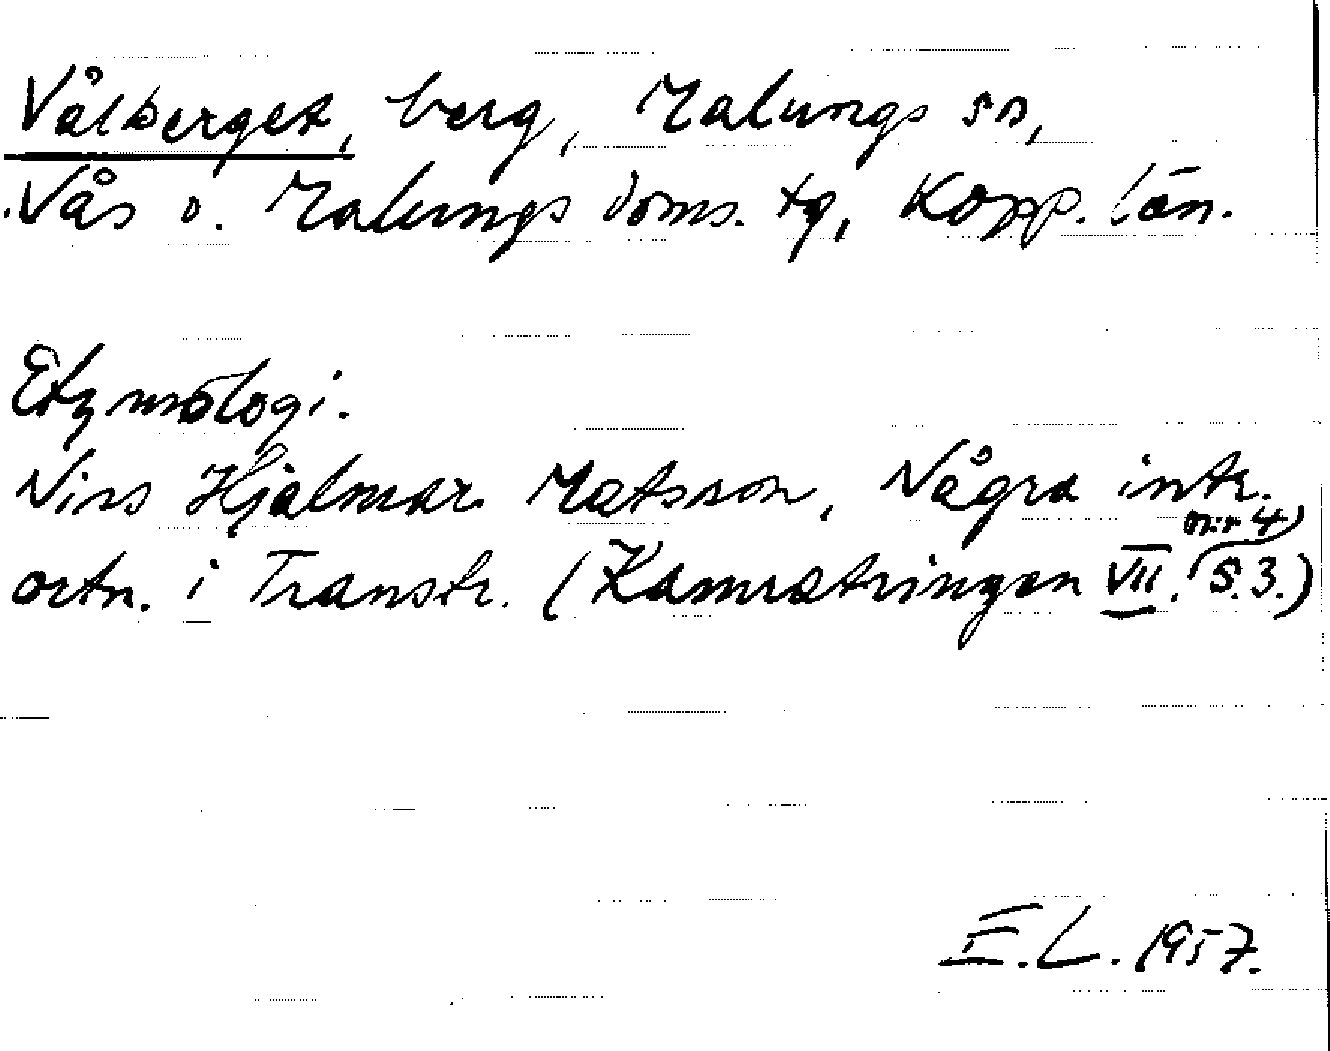 Vålberget, berg, Malungs sn,
Nås o. Malungs doms. tg, Kopp. län.
Etymologi.
Nils Hjalmar Matsson, Några intr.
ortn. i Transtr. (Kamratringen VII. nr 4, S. 3.)
E.L. 1957.